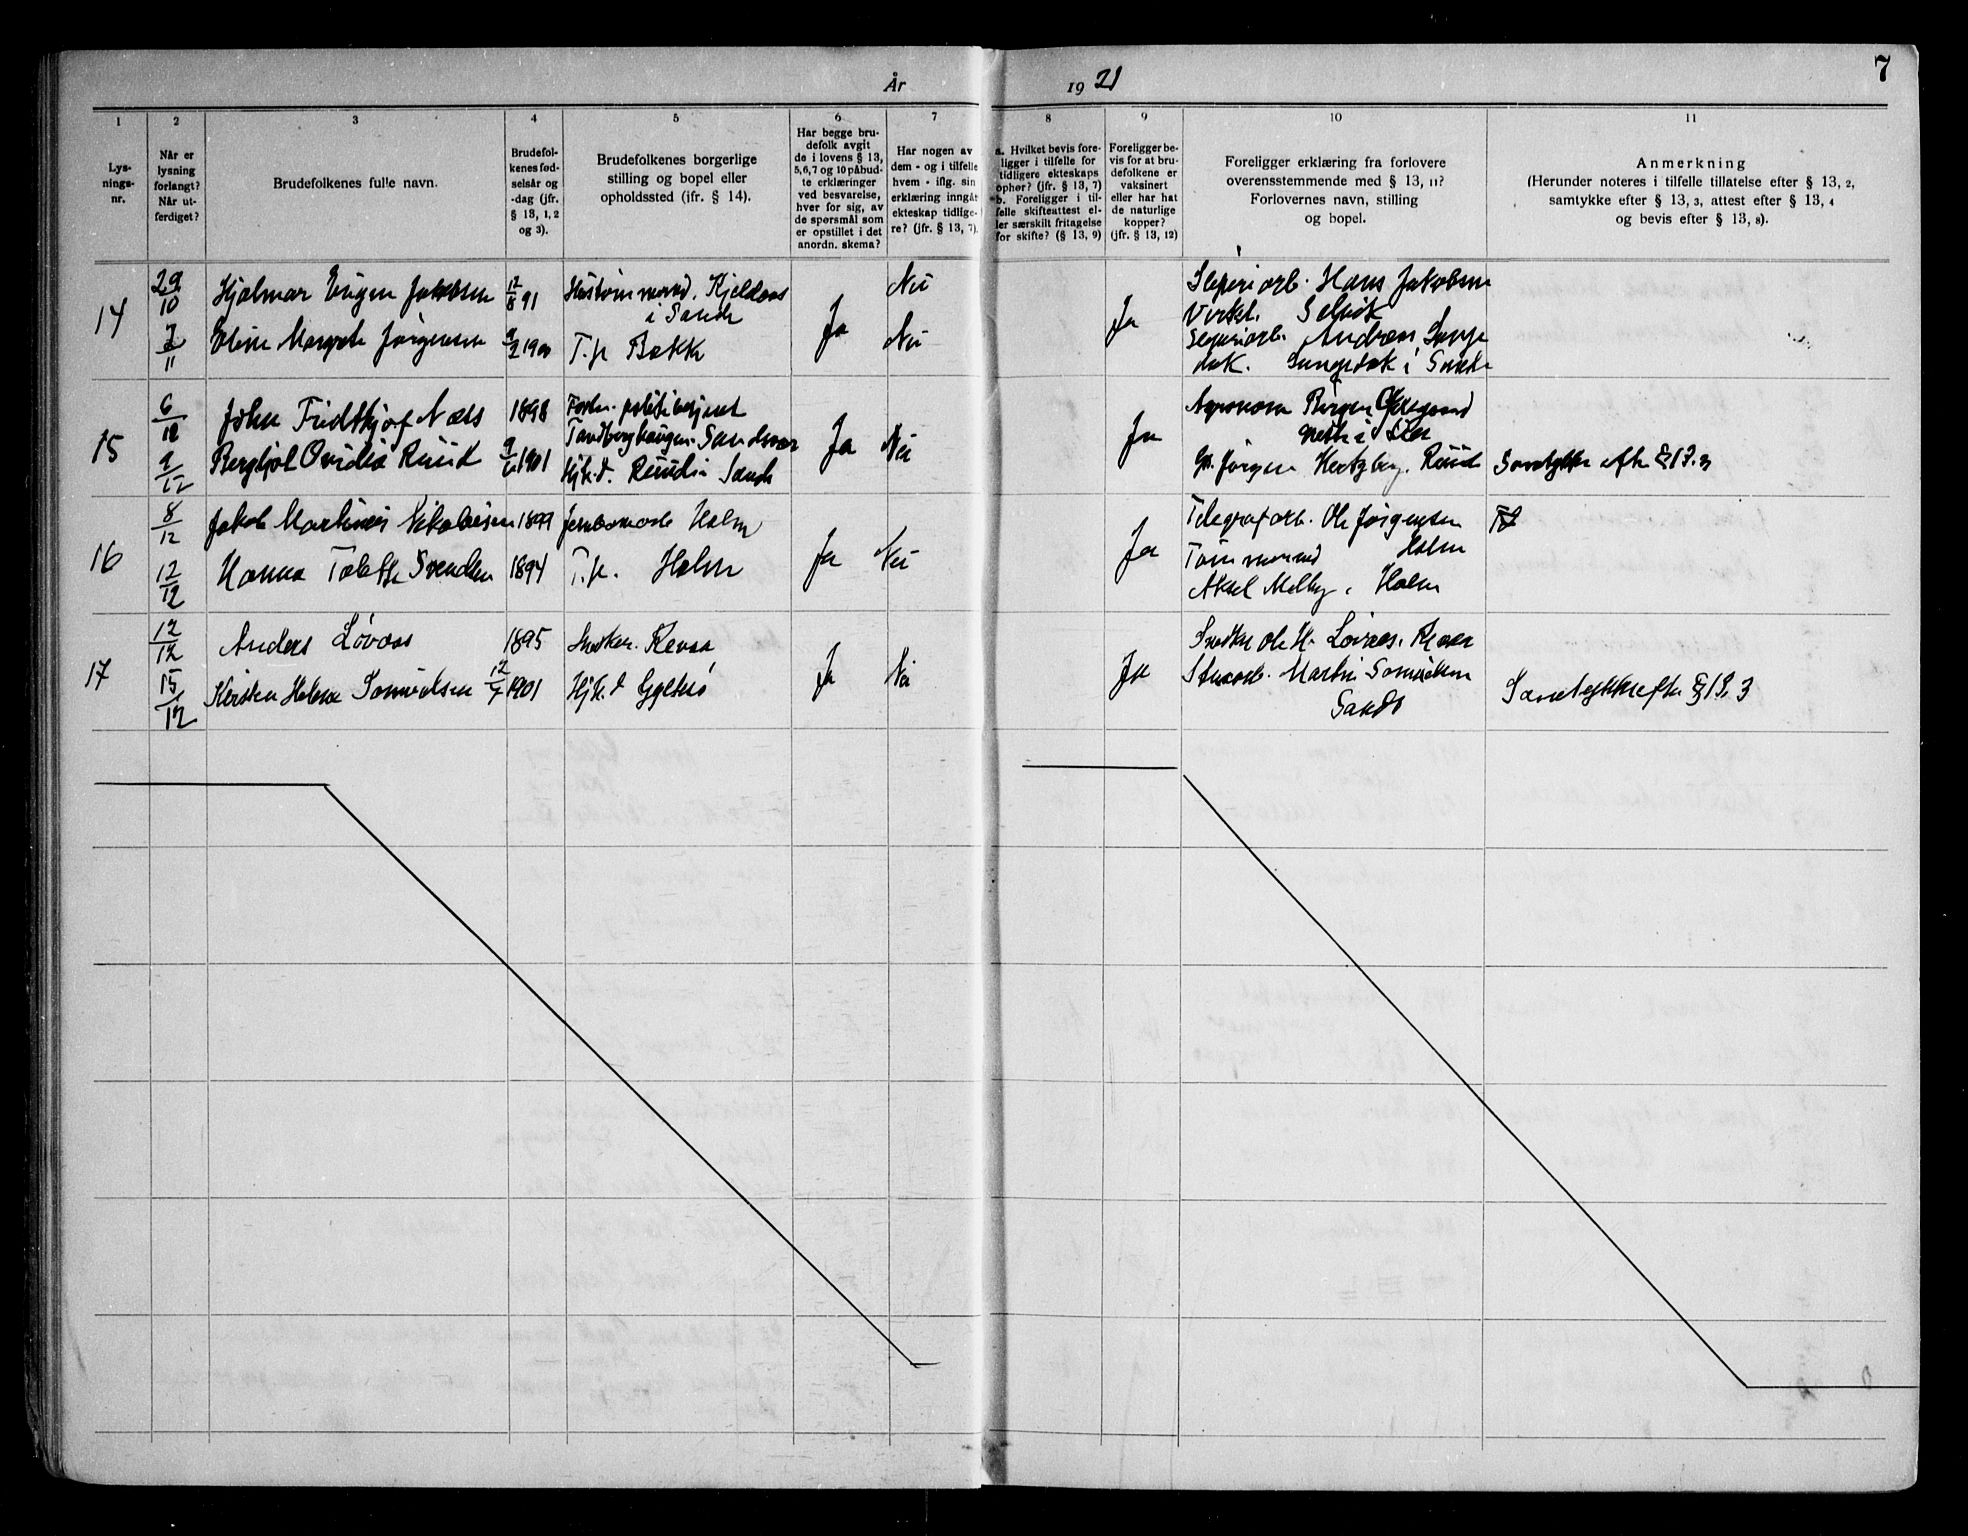 År 1921
7
1
2
3
4
5
6
7
8
9
10
11
Lys-
nings-
nr.
Når er
lysning
forlangt?
Når ut-
ferdiget?
Brudefolkenes fulle navn.
Brudefol-
kenes fød-
selsår og
-dag (jfr.
§ 13, 1, 2
og 3).
Brudefolkenes borgerlige
stilling og bopel eller
opholdssted (jfr. § 14).
Har begge bru-
defolk avgit
de i lovens § 13,
5,6,7 og 10 påbud-
te erklæringer
ved besvarelse,
hver for sig, av
de spørsmål som
er opstillet i det
anordn. skema?
Har nogen av
dem - og i tilfelle
hvem - iflg. sin
erklæring inngåt
ekteskap tidlige-
re? (jfr. § 13, 7).
a. Hvilket bevis fore-
ligger i tilfelle for
tidligere ekteskaps
ophør? (jfr. § 13, 7)
b. Foreligger i til-
felle skifteattest el-
ler særskilt fritagelse
for skifte? (§ 13, 9)
Foreligger be-
vis for at bru-
defolkene er
vaksinert
eller har hat
de naturlige
kopper?
(jfr. § 13, 12)
Foreligger erklæring fra forlovere
overensstemmende med § 13, 11?
Forlovernes navn, stilling
og bopel.
Anmerkning
(Herunder noteres i tilfelle tillatelse efter § 13, 2,
samtykke efter § 13, 3, attest efter § 13, 4
og bevis efter § 13, 8).
14
29/10
Hjalmar Eugen Jakobsen
12/8 91
Kjeldaas
i Sande
Ja
Nei
Ja
Hans Jakobsen
Selvik
/11
Margrete Jørgensen
9/2 1900
T.p. Bekk
Nei
Andreas
i Sande
15
6/12
John Fridthjof Næss
1898
Ja
Nei
Ja
Agronom Birger
9/12
Bergljot Ovidia Ruud
1901
Hjk.d. Ruud i Sande
Jørgen Hertzberg Ruud
Samtykke efter § 13.3
16
8/12
Jakob Martinius Nikolaisen
Holm
Ja
Nei
Ja
Telegrafarb. Ole Jørgensen
Holm
12/12
Hanna Svendsen
1894
T.p. Holm
Tømmermand
Aksel Melby, Holm
17
12/12
Anders Løvaas
1895
Snekker. Revaa
Ja
Nei
Ja
Snekker Ole H. Løvaas. Revaa
15/12
Kirsten Helene Samuelsen
12/7 1901
Hjk.d
Martin Samuelsen
Sande
Samtykke efter § 13, 3